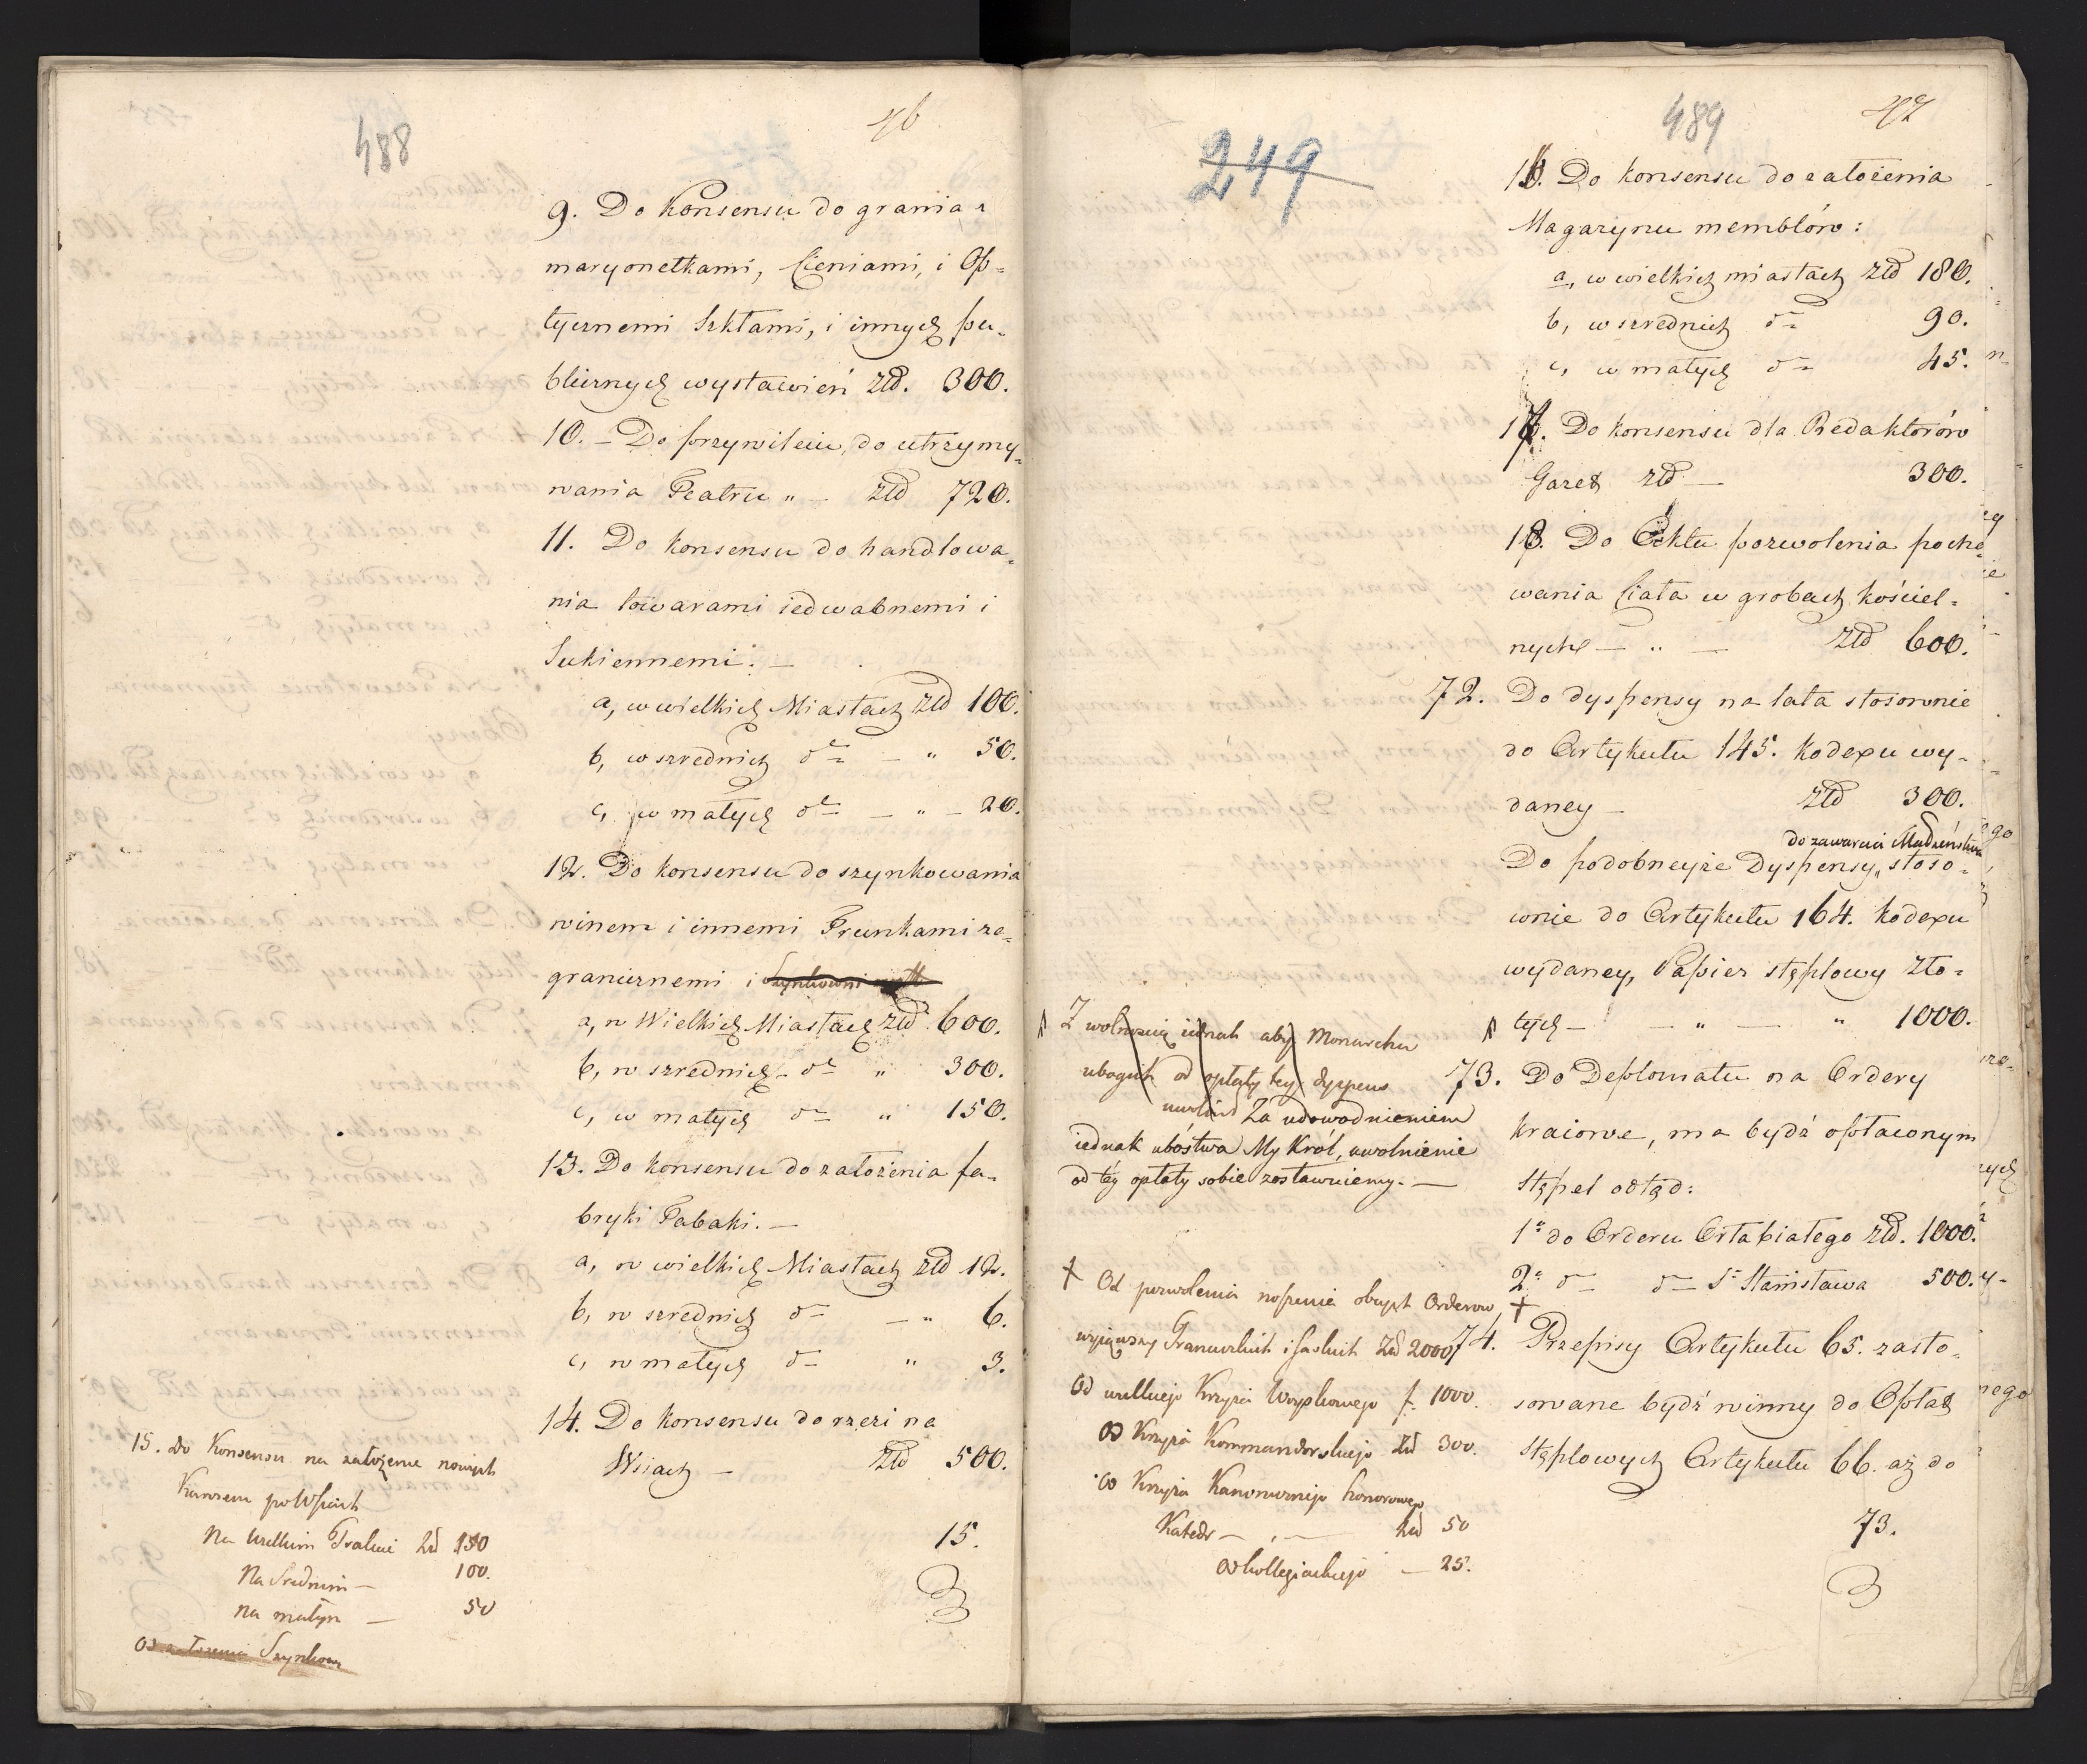 488
46
9. Do Konsensu do grania z
maryonetkami, Cieniami, i Op=
tycznemi Szkłami, i innych pu=
blicznych wystawień złd. 300.
10. – Do przywileiu, do utrzymy=
wania Teatru „ – złd 720.
11. Do konsensu do handlowa=
nia towarami iedwabnemi i
Sukiennemi. –
a, w wielkich Miastach złd 100.
b, w szrednich dº – „ 50.
c, w małych dº – „ – 20.
12. Do konsensu do szynkowania
winem i innemi Trunkami za=
granicznemi i
a, w Wielkich Miastach złd 600.
b, w szrednich – dº „ 300.
c, w małych dº „ 150.
13. Do konsensu do założenia fa=
bryki Tabaki. –
a, w wielkich Miastach złd 12.
b, w szrednich dº – „ 6.
c, w małych dº „ 3.
14. Do konsensu do rzezi na
Wsiach – złd 500.
15. do Konsensu na założenie nowych
Karczem po Wsiach
Na wielkim Trakcie Zł 150
Na Srednim – 100.
na małym – 50
15.
249
489
47
16. Do konsensu do założenia
Magazynu memblów:
a, w wielkich miastach złd 180.
b, w szrednich dº 90.
c, w małych dº 45.
17. Do konsensu dla Redaktorów
Gazet złd – 300.
18. Do Aktu pozwolenia pocho=
wania Ciała w grobach kościel=
nych – „ – złd 600.
72. Do dyspensy na lata stosownie
do Artykułu 145. Kodexu wy=
daney – złd 300.
do zawarcia Małżeństwa
Do podobneyże Dyspensy „ stoso=
wnie do Artykułu 164. kodexu
wydaney, Papier stęplowy zło=
tych – – „ – „ 1000.
Z wolnością iednak aby Monarcha
ubogich od opłaty tey dyspens
uwolnił Za udowodnieniem
iednak ubóstwa My Król, uwolnienie
od téy opłaty sobie zostawuiemy. –
73. Do Deplomatu na Ordery
kraiowe, ma bydź opłaconym
Stępel odtąd:
1º do Orderu Orła białego złd. 1000.
2º dº dº Sº Stanisława 500.
+ Od pozwolenia noszenia obcych Orderow, +
wyiąwszy Francuzkich i Saskich Złd 2000
Od wielkiego Krzyża Woyskowego f. 1000.
Od Krzyża Kommandorskiego Złd 300.
Od Krzyża Kanonicznego honorowego
Katedr – „ – Złd 50
Od kollegiackiego – 25.
74. Przepisy Artykułu 65. zasto=
sowane bydź winny do Opłat
Stęplowych Artykułu 66. aż do
73.